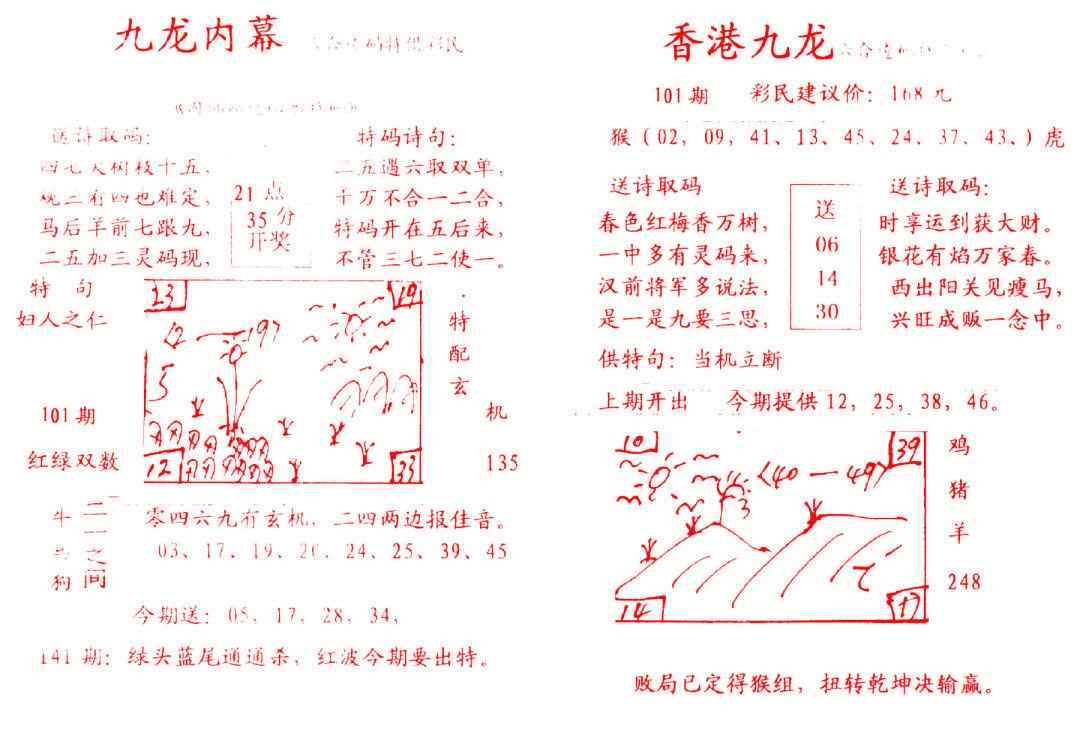 九龙内幕
送诗取码：
特码诗句：
四七大树枝十五，
观二有四也难定，
马后羊前七跟九，
二五加三灵码现，
21 点
35 分
开奖
二五遇六取双单，
十万不合一二合，
特码开在五后来，
不管三七二使一。
特 句
妇人之仁
101 期
红绿双数
23
19
12 — 19
5
12
33
特
配
玄
机
135
牛
狗
二
二
之
间
零四六九有玄机，二四两边报佳音。
03、17、19、20、24、25、39、45
今期送：05，17，28，34，
141 期：绿头蓝尾通通杀，红波今期要出特。
香港九龙
101 期 彩民建议价：168 元
猴（02，09，41，13，45，24，37，43、）虎
送诗取码
春色红梅香万树，
一中多有灵码来，
汉前将军多说法，
是一是九要三思，
送
06
14
30
送诗取码：
时享运到获大财。
银花有焰万家春。
西出阳关见瘦马，
兴旺成贩一念中。
供特句：当机立断
上期开出 今期提供 12，25，38，46。
10
39
40 — 49
3
14
17
鸡
猪
羊
248
败局已定得猴组，扭转乾坤决输赢。